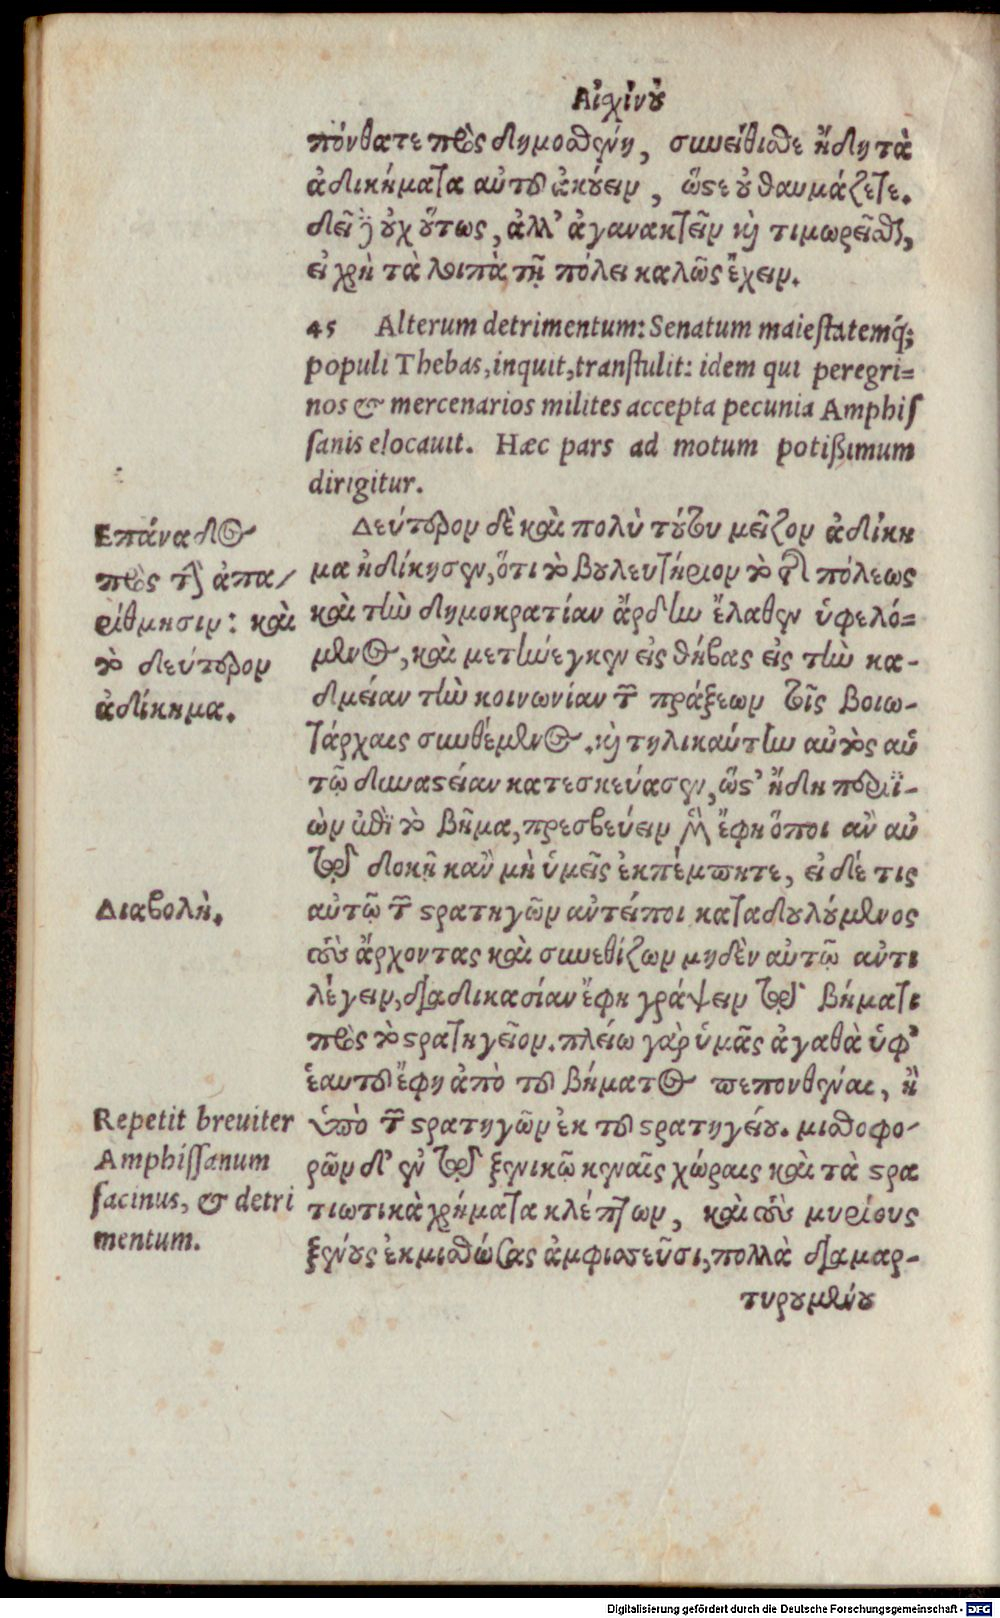 Αἰχίνου
πόνθατε πρὸς δημοσθένη, συνείθισθε ἤδη τὰ
ἀδικήματα αὐτοῦ ἀκούειν, ὥστε οὐ θαυμάζετε.
δεῖ δὲ οὐχ οὕτως, ἀλλ' ἀγανακτεῖν καὶ τιμωρεῖσθαι,
εἰ χρὴ τὰ λοιπὰ τῇ πόλει καλῶς ἔχειν.
45 Alterum detrimentum: Senatum maiestatemq́;
populi Thebas, inquit, transtulit: idem qui peregri=
nos & mercenarios milites accepta pecunia Amphis
sanis elocauit. Hæc pars ad motum potißimum
dirigitur.
Επάναδος
πρὸς τὴν ἀπα/
ρίθμησιν: καὶ
τὸ δεύτερον
ἀδίκημα.
Δεύτερον δὲ καὶ πολὺ τούτου μεῖζον ἀδίκη
μα ἠδίκησεν, ὅτι τὸ βουλευτήριον τὸ τῆς πόλεως
καὶ τὴν δημοκρατίαν ἄρδην ἔλαθεν ὑφελό=
μενος, καὶ μετήνεγκεν εἰς θήβας εἰς τὴν κα-
δμείαν τὴν κοινωνίαν τῶν πράξεων τοῖς βοιω-
τάρχαις συνθέμενος. καὶ τηλικαύτην αὐτὸς αὑ
τῷ δυναστείαν κατεσκεύασεν, ὥστ' ἤδη παριϊ-
ὼν ἐπὶ τὸ βῆμα, πρεσβεύειν μὲν ἔφη ὅποι ἂν αὐ
τῷ δοκῇ κἂν μὴ ὑμεῖς ἐκπέμπητε, εἰ δέ τις
Διαβολὴ.
αὐτῷ τῶν στρατηγῶν ἀντείποι καταδουλούμενος
τοὺς ἄρχοντας καὶ συνεθίζων μηδὲν αὐτῷ ἀντι
λέγειν, διαδικασίαν ἔφη γράψειν τῷ βήματι
πρὸς τὸ στρατηγεῖον. πλείω γὰρ ὑμᾶς ἀγαθὰ ὑφ'
ἑαυτοῦ ἔφη ἀπὸ τοῦ βήματος πεπονθέναι, ἢ
Repetit breuiter
Amphissanum
facinus, & detri
mentum.
ὑπὸ τῶν στρατηγῶν ἐκ τοῦ στρατηγείου. μισθοφο/
ρῶν δ' ἐν τῷ ξενικῷ κεναῖς χώραις καὶ τὰ στρα
τιωτικὰ χρήματα κλέπτων, καὶ τοὺς μυρίους
ξένους ἐκμισθώσας ἀμφισσεῦσι, πολλὰ διαμαρ-
τυρουμένου
Digitalisierung gefördert durch die Deutsche Forschungsgemeinschaft - DFG